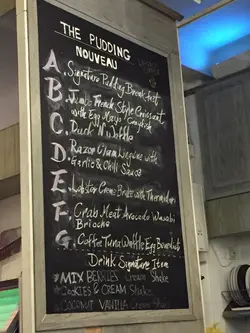 THE PUDDING
NOUVEAU
A. Signature Pudding Breakfast
B. Jumbo French Style Croissant
with Egg Mayo
C. Duck N Waffle
D. Razor Clam Linguine with
Garlic & Chili Sauce
E. Lobster Creme Brule with Thermidor
F. Crab Meat Avocado Wasabi
Brioche
G. Coffee Tuna Waffle Egg Benedict
Drink Signature Item
*MIX BERRIES Cream Shake
*COOKIES & CREAM Shake
*COCONUT VANILLA Cream Shake